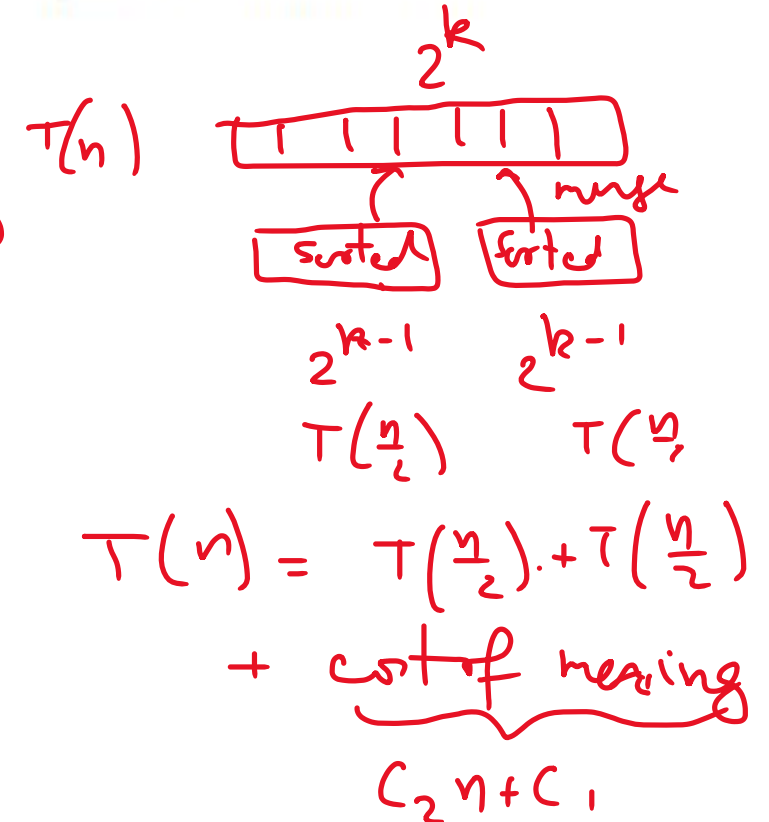 2^k
T(n)
merge
sorted sorted
2^k-1 2^k-1
T(n/2) T(n/2
T(n) = T(n/2) + T(n/2)
+ cost of merging
C₂n + C₁